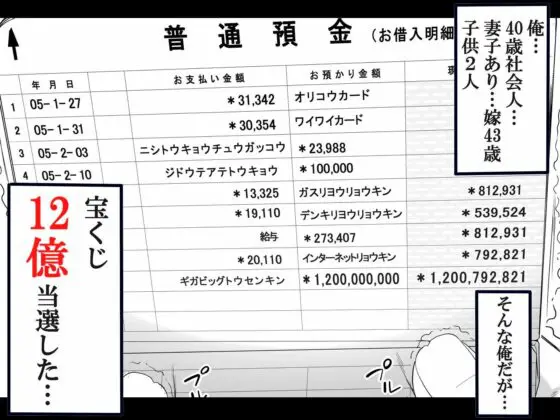 俺…
40歳社会人…
妻子あり…嫁43歳
子供2人
普通預金 (お借入明細
年月日 お支払い金額 お預かり金額 現
1 05-1-27 *31,342 オリコウカード
2 05-1-31 *30,354 ワイワイカード
3 05-2-03 ニシトウキョウチュウガッコウ *23,988
4 05-2-10 ジドウテアテトウキョウ *100,000
*13,325 ガスリヨウリョウキン *812,931
*19,110 デンキリヨウリョウキン *539,524
給与 *273,407 *812,931
*20,110 インターネットリョウキン *792,821
ギガビッグトウセンキン *1,200,000,000 *1,200,792,821
そんな俺だが…
宝くじ
12億
当選した…
プル
プル